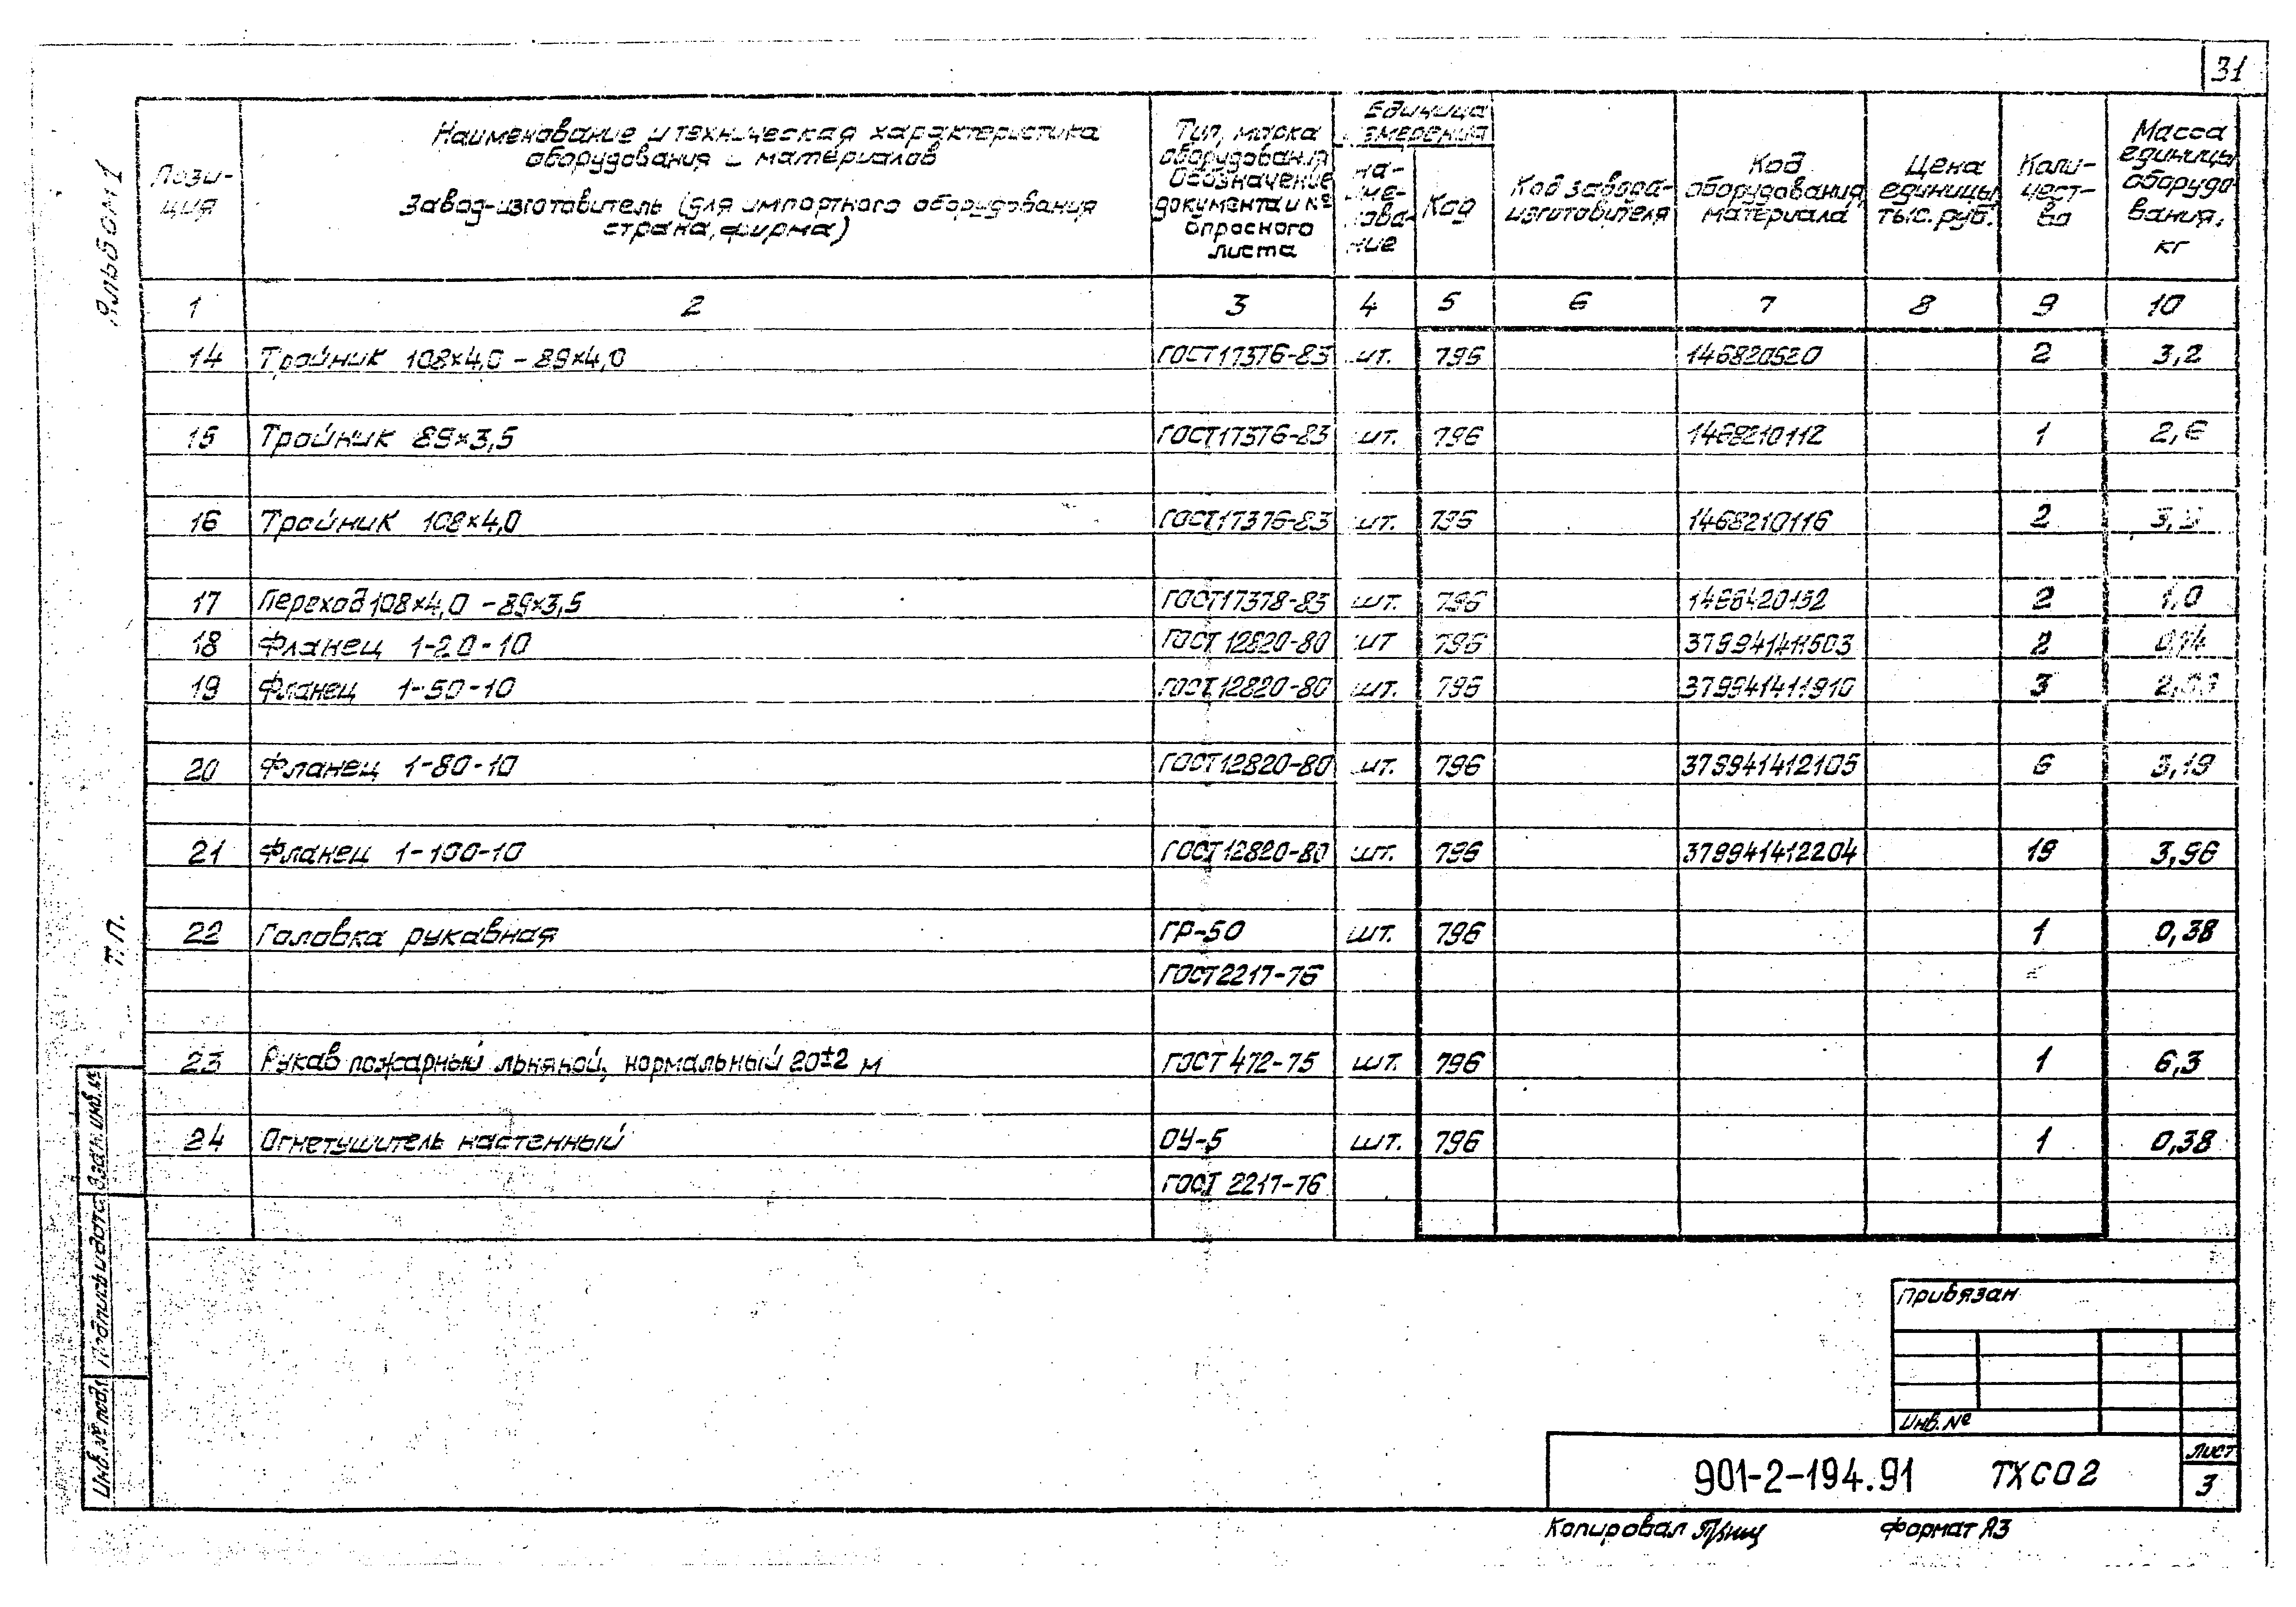 31
Альбом 1
Пози-
ция
Наименование и техническая характеристика
оборудования и материалов
Завод-изготовитель (для импортного оборудования
страна, фирма)
Тип, марка
оборудования
Обозначение
документа и №
опросного
листа
Единица
измерения
на-
име-
нова-
ние
Код
Код завода-
изготовителя
Код
оборудования,
материала
Цена
единицы,
тыс. руб.
Коли-
чест-
во
Масса
единицы
оборудо
вания,
кг
1 2 3 4 5 6 7 8 9 10
14 Тройник 108×4,0 - 89×4,0 ГОСТ 17376-83 шт. 796 146820520 2 3,2
15 Тройник 89×3,5 ГОСТ 17376-83 шт. 796 1468210112 1 2,6
16 Тройник 108×4,0 ГОСТ 17376-83 шт. 796 1468210116 2
17 Переход 108×4,0 - 89×3,5 ГОСТ 17378-83 шт. 796 1468420152 2 1,0
18 Фланец 1-20-10 ГОСТ 12820-80 шт 796 379941411503 2
19 Фланец 1-50-10 ГОСТ 12820-80 шт. 796 379941411910 3
20 Фланец 1-80-10 ГОСТ 12820-80 шт. 796 379941412105 6 3,19
21 Фланец 1-100-10 ГОСТ 12820-80 шт. 796 379941412204 19 3,96
22 Головка рукавная ГР-50 шт. 796 1 0,38
ГОСТ 2217-76
23 Рукав пожарный льняной, нормальный 20±2 м ГОСТ 472-75 шт. 796 1 6,3
24 Огнетушитель настенный ОУ-5 шт. 796 1 0,38
ГОСТ 2217-76
Т.П.
Взам. инв. №
Подпись и дата
Инв. № подл.
Привязан
Инв. №
901-2-194.91 ТХСО2
Лист
3
Копировал
Формат А3